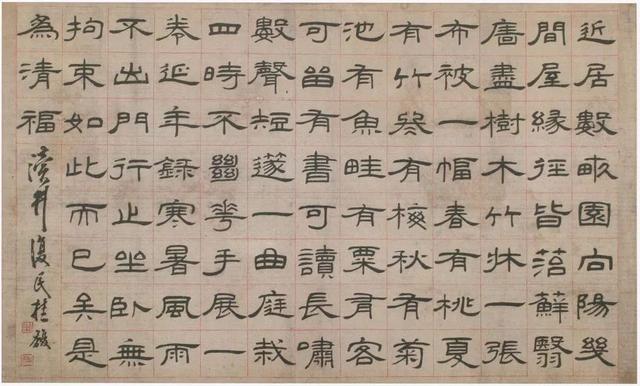 近居數畝園向陽幾
間屋緣徑皆菭蘚翳
廧盡樹木竹牀一張
布被一幅春有桃夏
有竹冬有梅秋有菊
池有魚畦有粟有客
可留有書可讀長嘯
數聲短篴一曲庭栽
四時不華手展一
卷延年錄寒暑風雨
不出門行止坐臥無
拘束如此而已矣是
為清福
瀆井復民桂馥